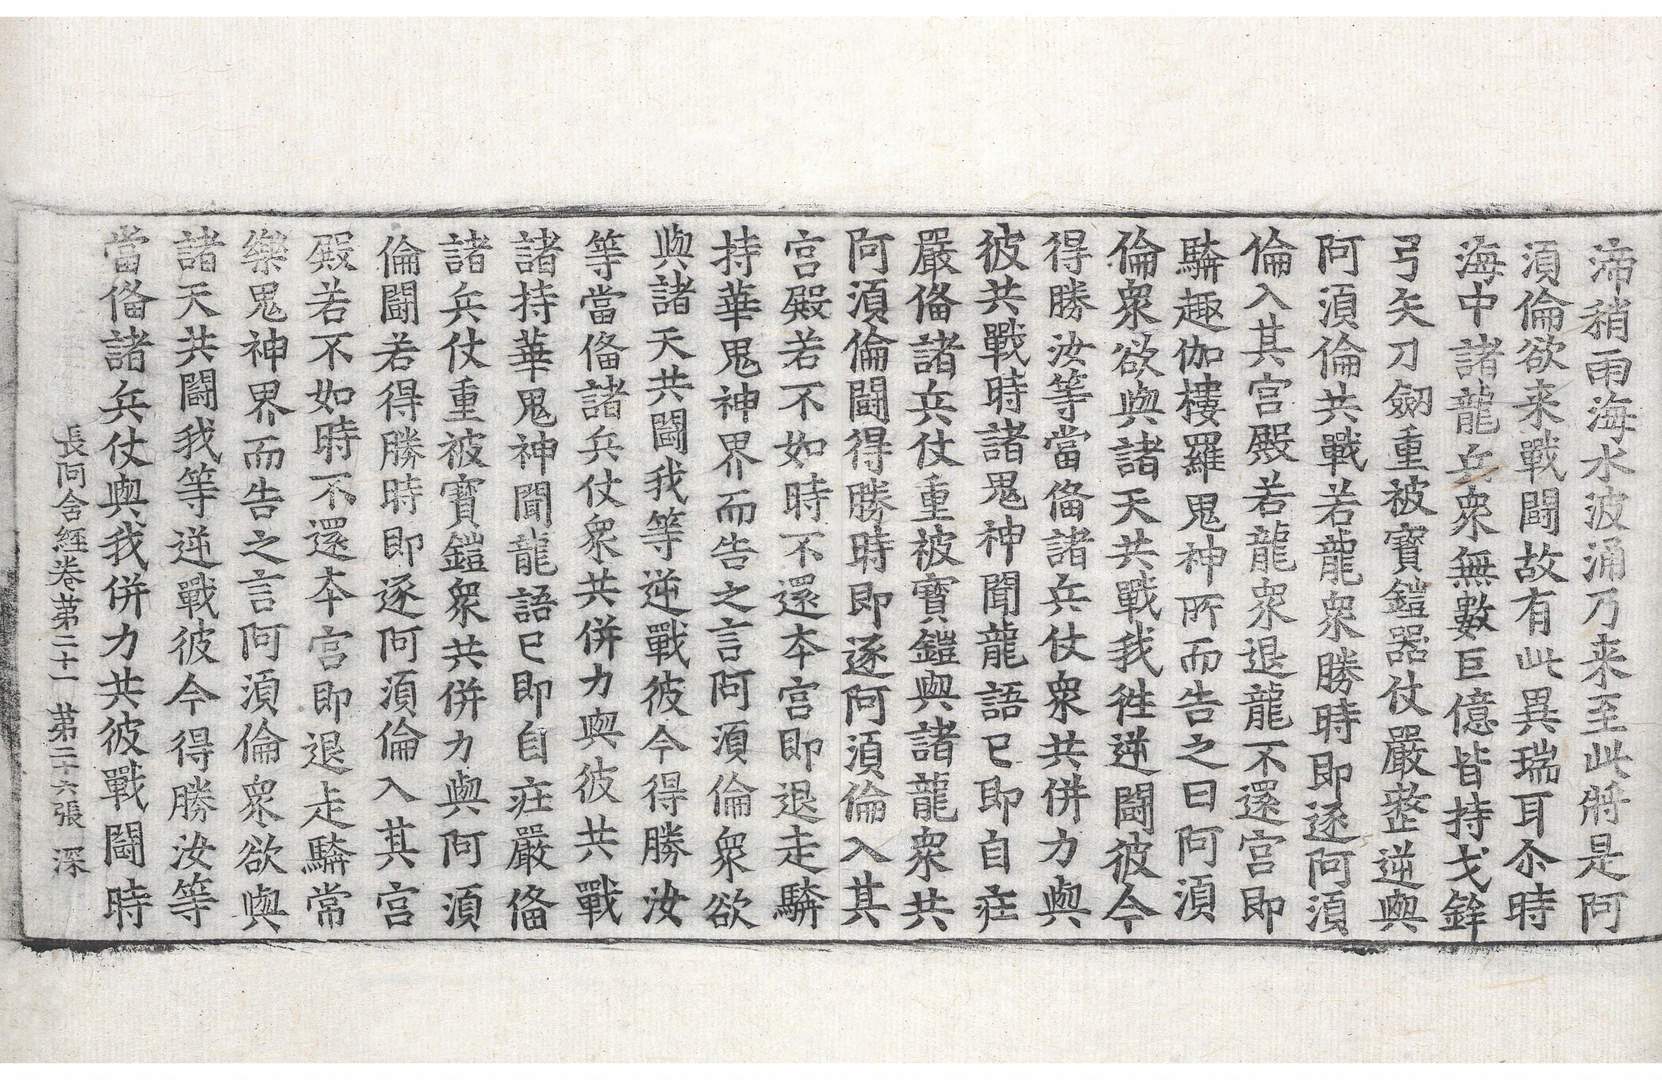 渧稍雨海水波涌乃来至此將是阿
湏倫欲来戰鬪故有此異瑞耳尒時
海中諸龍兵衆無數巨億皆持戈鉾
弓矢刀劒重被寳鎧器仗嚴整逆與
阿湏倫共戰若龍衆勝時即逐阿湏
倫入其宫殿若龍衆退龍不還宫即
䮧趣伽樓羅鬼神所而告之曰阿湏
倫衆欲與諸天共戰我徃逆鬪彼今
得勝汝等當俻諸兵仗衆共併力與
彼共戰時諸鬼神聞龍語已即自莊
嚴俻諸兵仗重被寳鎧與諸龍衆共
阿湏倫鬪得勝時即逐阿湏倫入其
宫殿若不如時不還本宫即退走䮧
持華鬼神界而告之言阿湏倫衆欲
與諸天共鬪我等逆戰彼今得勝汝
等當俻諸兵仗衆共併力與彼共戰
諸持華鬼神聞龍語已即自莊嚴俻
諸兵仗重被寳鎧衆共併力與阿湏
倫鬪若得勝時即逐阿湏倫入其宫
殿若不如時不還本宫即退走䮧常
樂鬼神界而告之言阿湏倫衆欲與
諸天共鬪我等逆戰彼今得勝汝等
當俻諸兵仗與我併力共彼戰鬪時
長阿含經卷第二十一 第二十六張 深